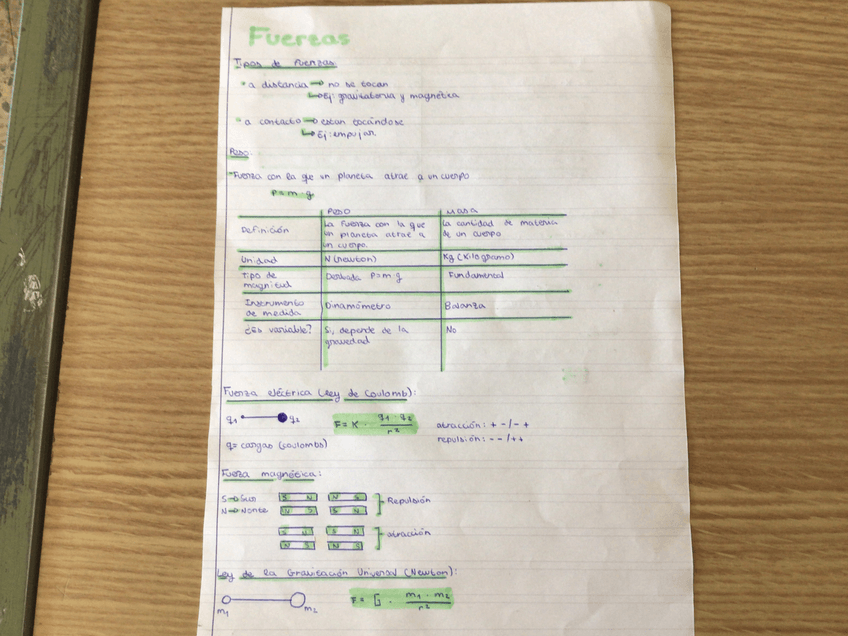 Fuerzas
Tipos de Fuerzas
• a distancia → no se tocan
↳ Ej: gravitatoria y magnética
• a contacto → estan tocándose
↳ Ej: empujar.
Peso:
Fuerza con la que un planeta atrae a un cuerpo
P = m · g
Peso Masa
Definición La Fuerza con la que un planeta atrae a un cuerpo. La cantidad de materia de un cuerpo
Unidad N (newton) Kg (Kilogramo)
Tipo de magnitud Derivada P = m · g Fundamental
Instrumento de medida Dinamómetro Balanza
¿Es variable? Si, depende de la gravedad No
Fuerza eléctrica (Ley de Coulomb):
q1 q2 F = K · q1 · q2 / r² atracción: + - / - +
q = cargas (coulombs) repulsión: - - / + +
Fuerza magnética:
S → Sur S N N S Repulsión
N → Norte N S S N
S N S N atracción
N S N S
Ley de la Gravitación Universal (Newton):
m1 m2 F = G · m1 · m2 / r²